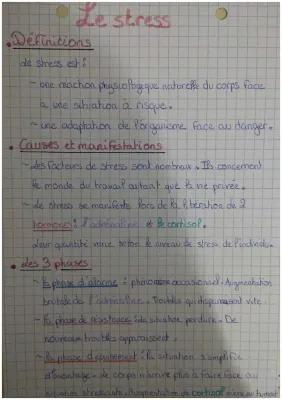 Le stress
• Définitions
Le stress est :
- une réaction physiologique naturelle du corps face
à une situation à risque.
- une adaptation de l'organisme face au danger.
• Causes et manifestations
- Les facteurs de stress sont nombreux. Ils concernent
le monde du travail autant que la vie privée.
- Le stress se manifeste lors de la libération de 2
hormones : l'adrénaline et le cortisol.
Leur quantité varie selon le niveau de stress de l'individu.
• Les 3 phases
- La phase d'alarme : phénomène occasionnel. Augmentation
brutale de l'adrénaline. Troubles qui disparaissent vite.
- La phase de résistance : la situation perdure. De
nouveaux troubles apparaissent.
- La phase d'épuisement : la situation s'amplifie
d'avantage. Le corps n'arrive plus à faire face au
situation stressante. Augmentation de cortisol